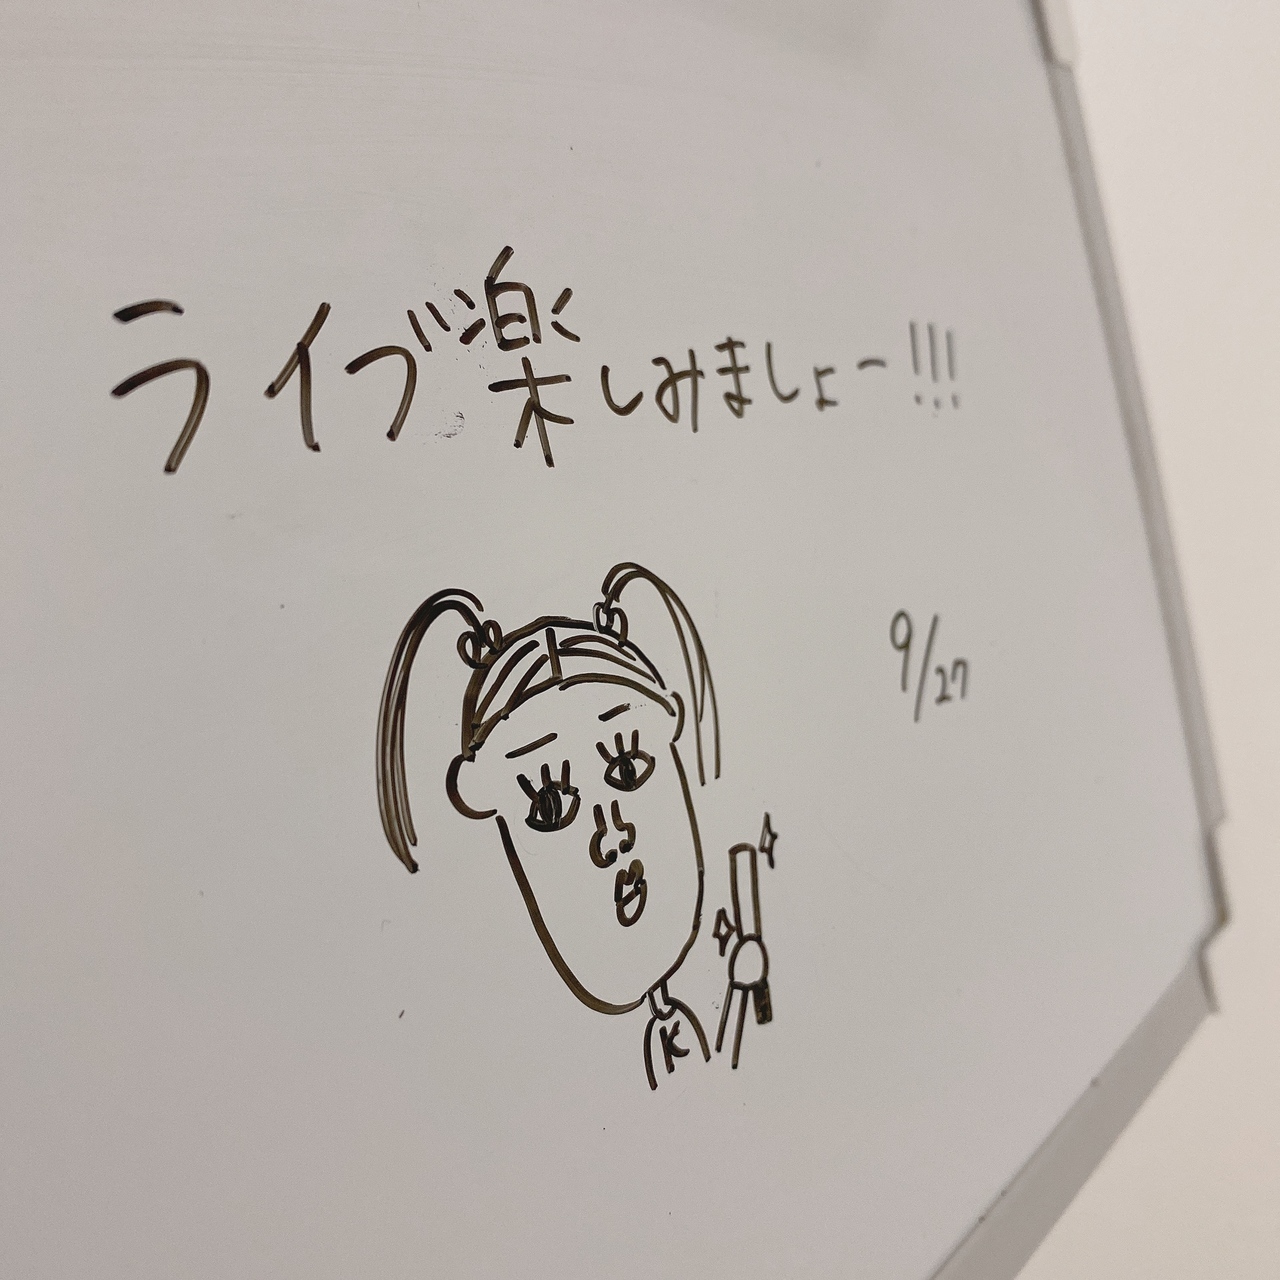 ライブ楽しみましょー!!!
9/27
K